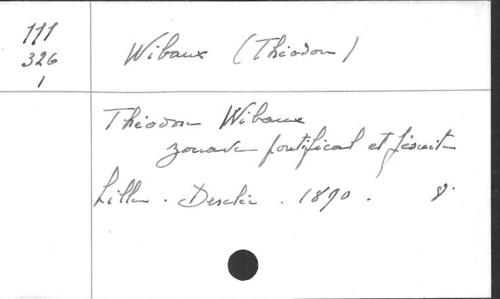 111
326
1
Wibaux (Théodore)
Théodore Wibaux
zouave pontifical et jésuite
Lille. Desclée. 1890. 8°.